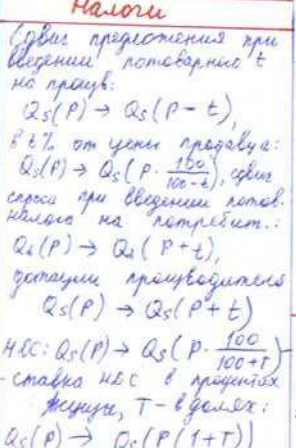 Налоги
Сдвиг предложения при
введении потоварного t
на произв:
Qs(P) → Qs(P - t),
в t% от цены продавца:
Qs(P) → Qs(P · 100/(100-t)), сдвиг
спроса при введении потов.
налога на потребит.:
Qd(P) → Qd(P + t),
дотации производителя
Qs(P) → Qs(P + t)
НДС: Qs(P) → Qs(P · 100/(100+T)) -
ставка НДС в процентах
T - в долях:
Qs(P) → Qs(P(1+T))